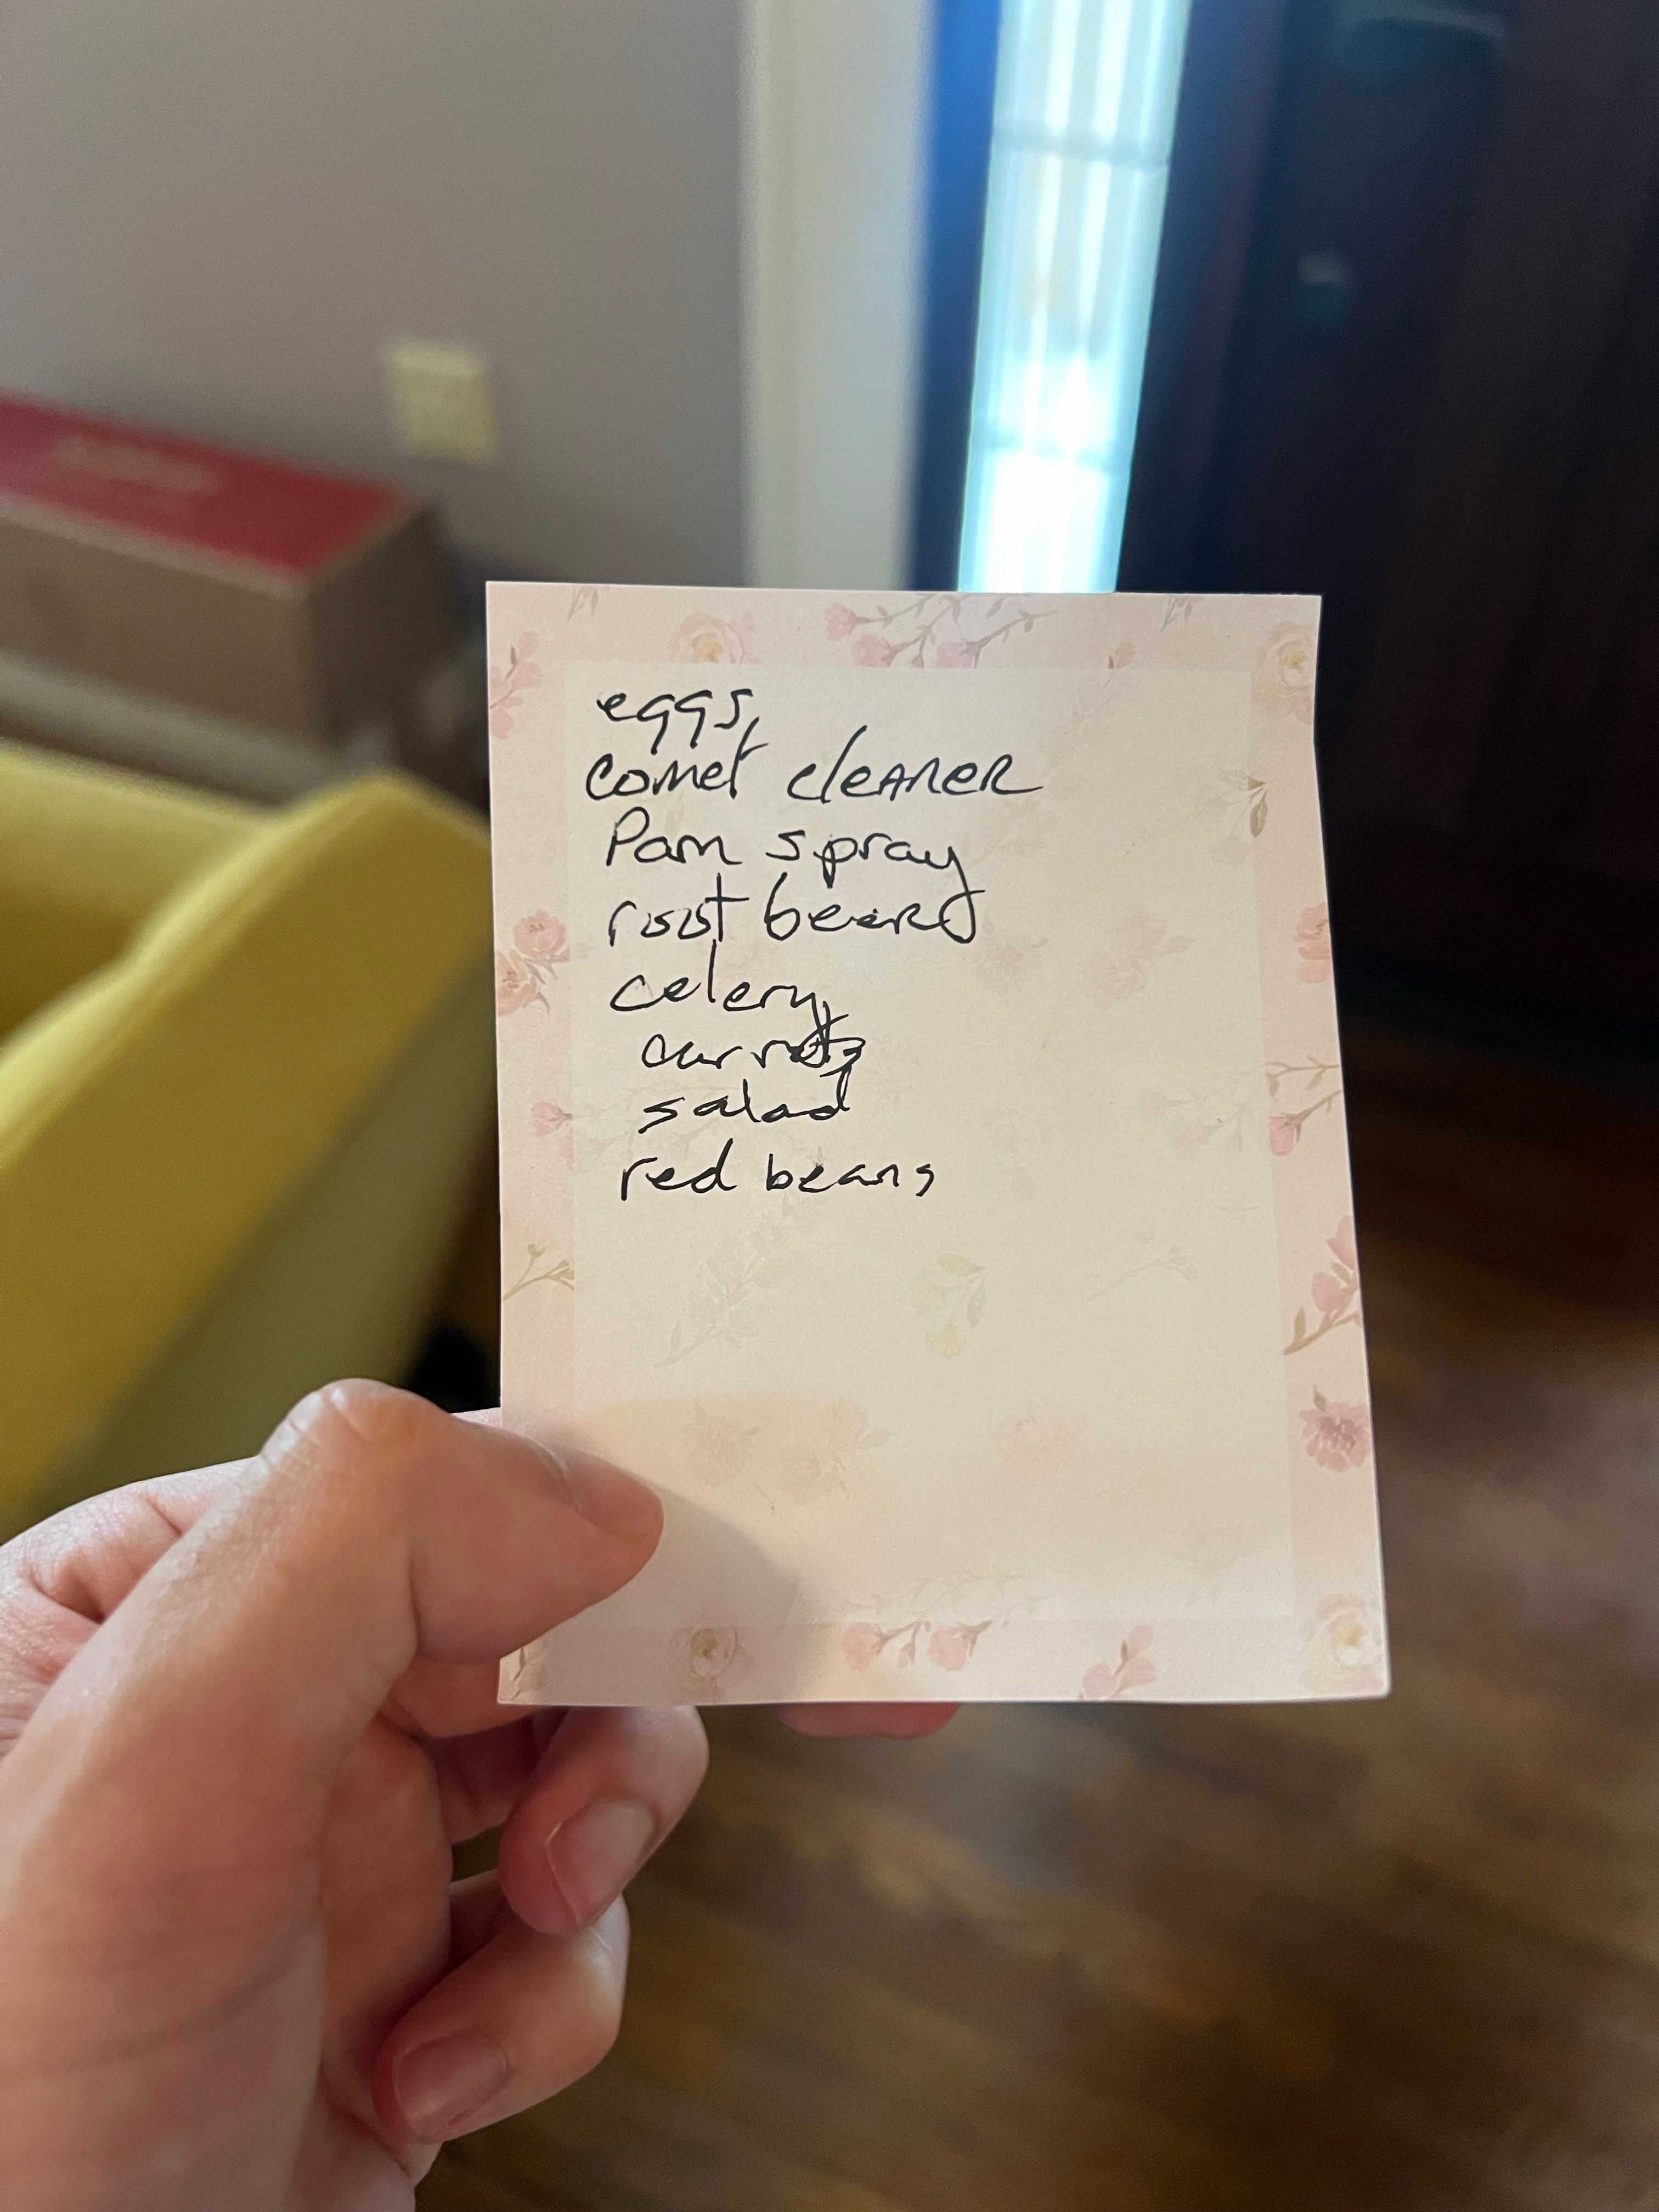 eggs
comet cleaner
Pam spray
root beers
celery
carrots
salad
red beans